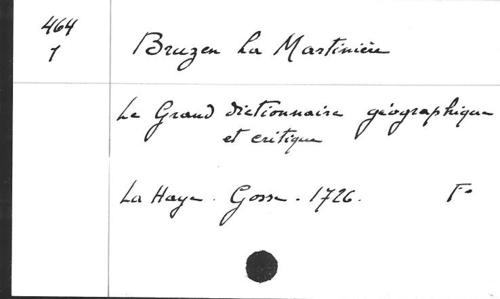 464
1
Bruzen La Martinière
Le Grand dictionnaire géographique
et critique
La Haye. Gosse. 1726. F°